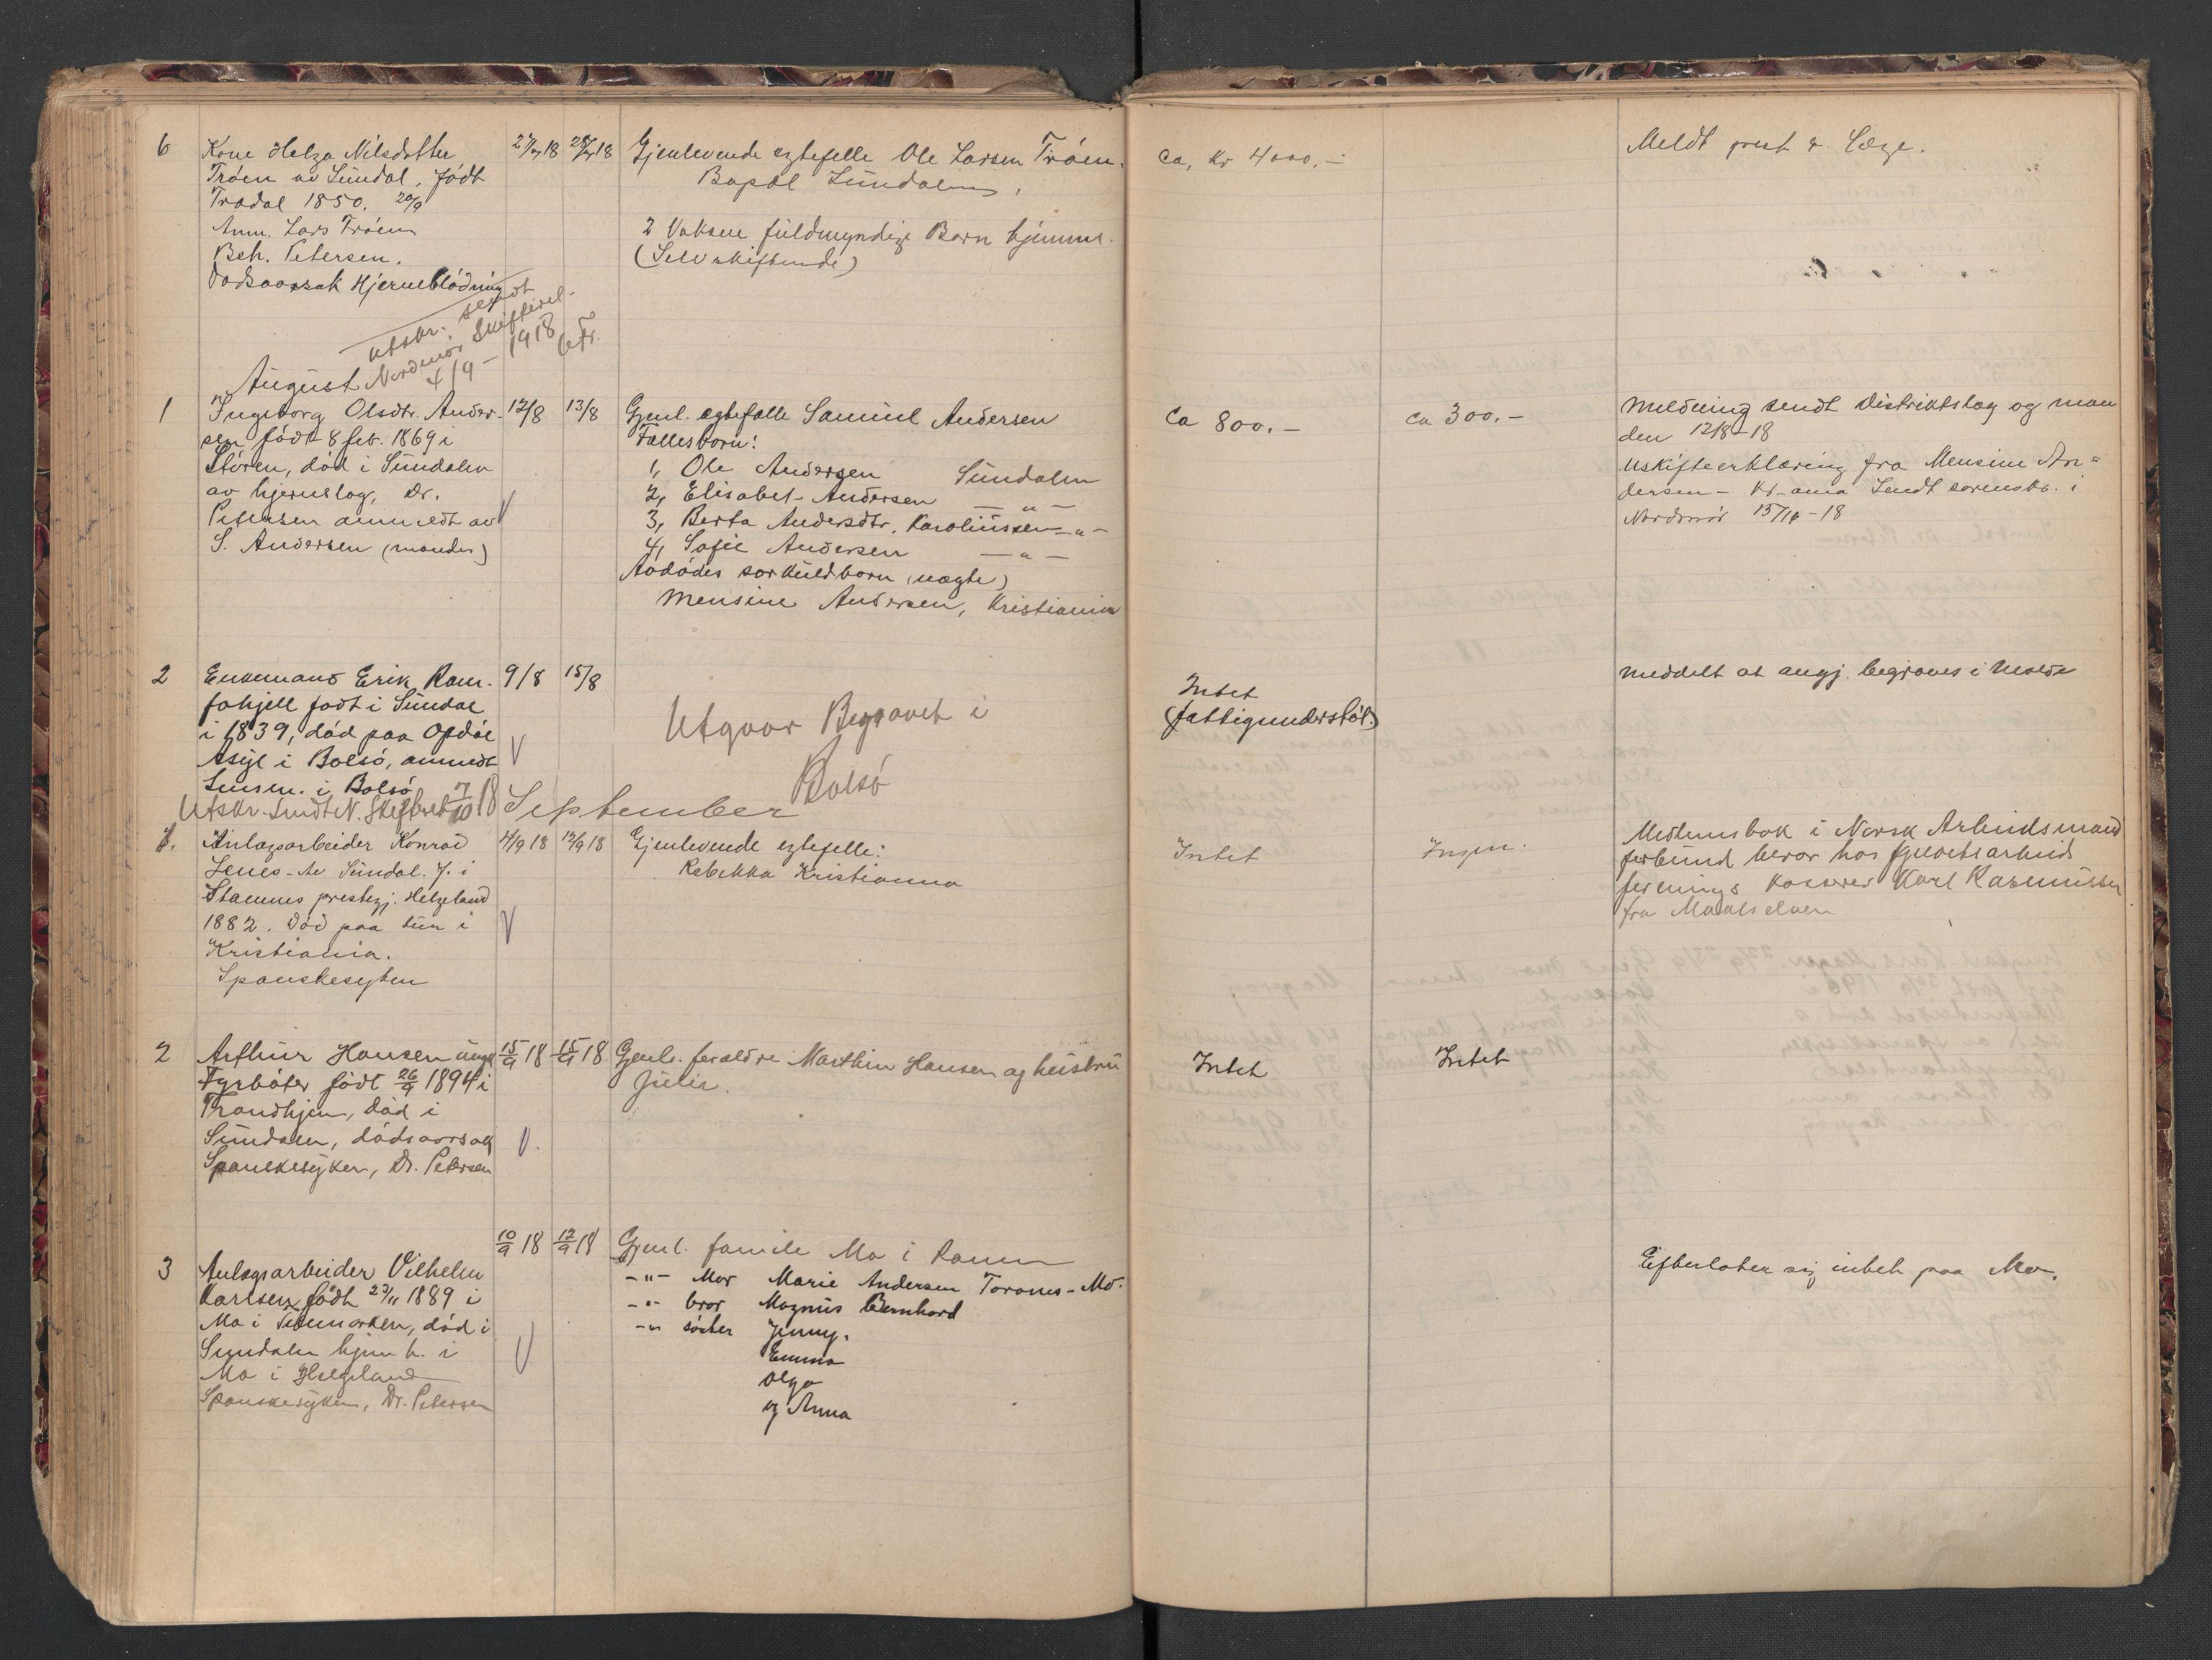 6 Kone Helga Nilsdatter 27/7 18 28/7 18 Gjenlevende egtefelle Ole Larsen Tröen. ca, kr 4000.- Meldt prest & Læge.
Tröen av Sundal, født Bopæl Sundalen,
Tradal 1850. 20/9
Anm. Lars Tröen 2 Voksne fuldmyndige Barn hjemme.
Beh. Petersen. (Selvskiftende)
Dødsaarsak Hjerneblödning
utskr. sendt
Nordmör Skifteret
4/9 - 1918
August
1 Ingeborg Olsdtr. Ander- 12/8 13/8 Gjenl. egtefælle Samuel Andersen ca 800.- ca 300.- Meldning sendt distriktslæg og man
sen født 8 feb. 1869 i Fællesbarn: den 12/8-18
Stören, död i Sundalen 1, Ole Andersen Sundalen Uskifteerklæring fra Mensine An-
av hjerneslag, Dr. 2, Elisabet Andersen - " - dersen - Kr-ania Sendt sorenskr. i
Petersen anmeldt av 3, Berta Andersdtr. Karoliussen - " - Nordmör 15/10-18
S. Andersen (manden) 4, Sofie Andersen - " -
Avdödes særkuldbarn (uægte)
Mensine Andersen, Kristiania
2 Enkemand Erik Ram- 9/8 15/8 Intet meddelt at angj. begraves i Molde
fohjell født i Sundal Utgaar Begravet i (fattigunderstöt.)
i 1839, död paa Opdöl Bolsö
Asyl i Bolsö, anmeldt
Lensm. i Bolsö
Utskr. Sendt N. Skifteret 7/10 18 September
1. Anlægsarbeider Konrad 4/9 18 12/9 18 Gjenlevende egtefelle: Intet Ingen. Medlemsbok i Norsk Arbeidsmand
Lenes - Av Sundal. F. i Rebekka Kristianna forbund beror hos
Stamnes prestegj. Helgeland forenings kasserer Karl Rasmussen
1882. Död paa tur i fra Maalselven
Kristiania.
Spanskesyken
2 Arthur Hansen ungk 15/9 18 15/9 18 Gjenlv. forældre Marthin Hansen og hustru Intet Intet
Fyrböter födt 26/9 1894 i Julie.
Trondhjem, död i
Sundalen, dödsaarsak
Spanskesyken, Dr. Petersen
10/9 18 12/9 18 Gjenl. famile Mo i Ranen
3 Anlægsarbeider Vilhelm - " - Mor Marie Andersen Toranes - Mo. Efterlater sig intet paa Mo.
Karlsen, födt 23/11 1889 i - " - bror Magnus Bernhard
Mo i , död i - " - söster Jenny.
Sundalen hjem h. i Emma
Mo i Helgeland Olga
Spanskesyken, Dr. Petersen og Anna